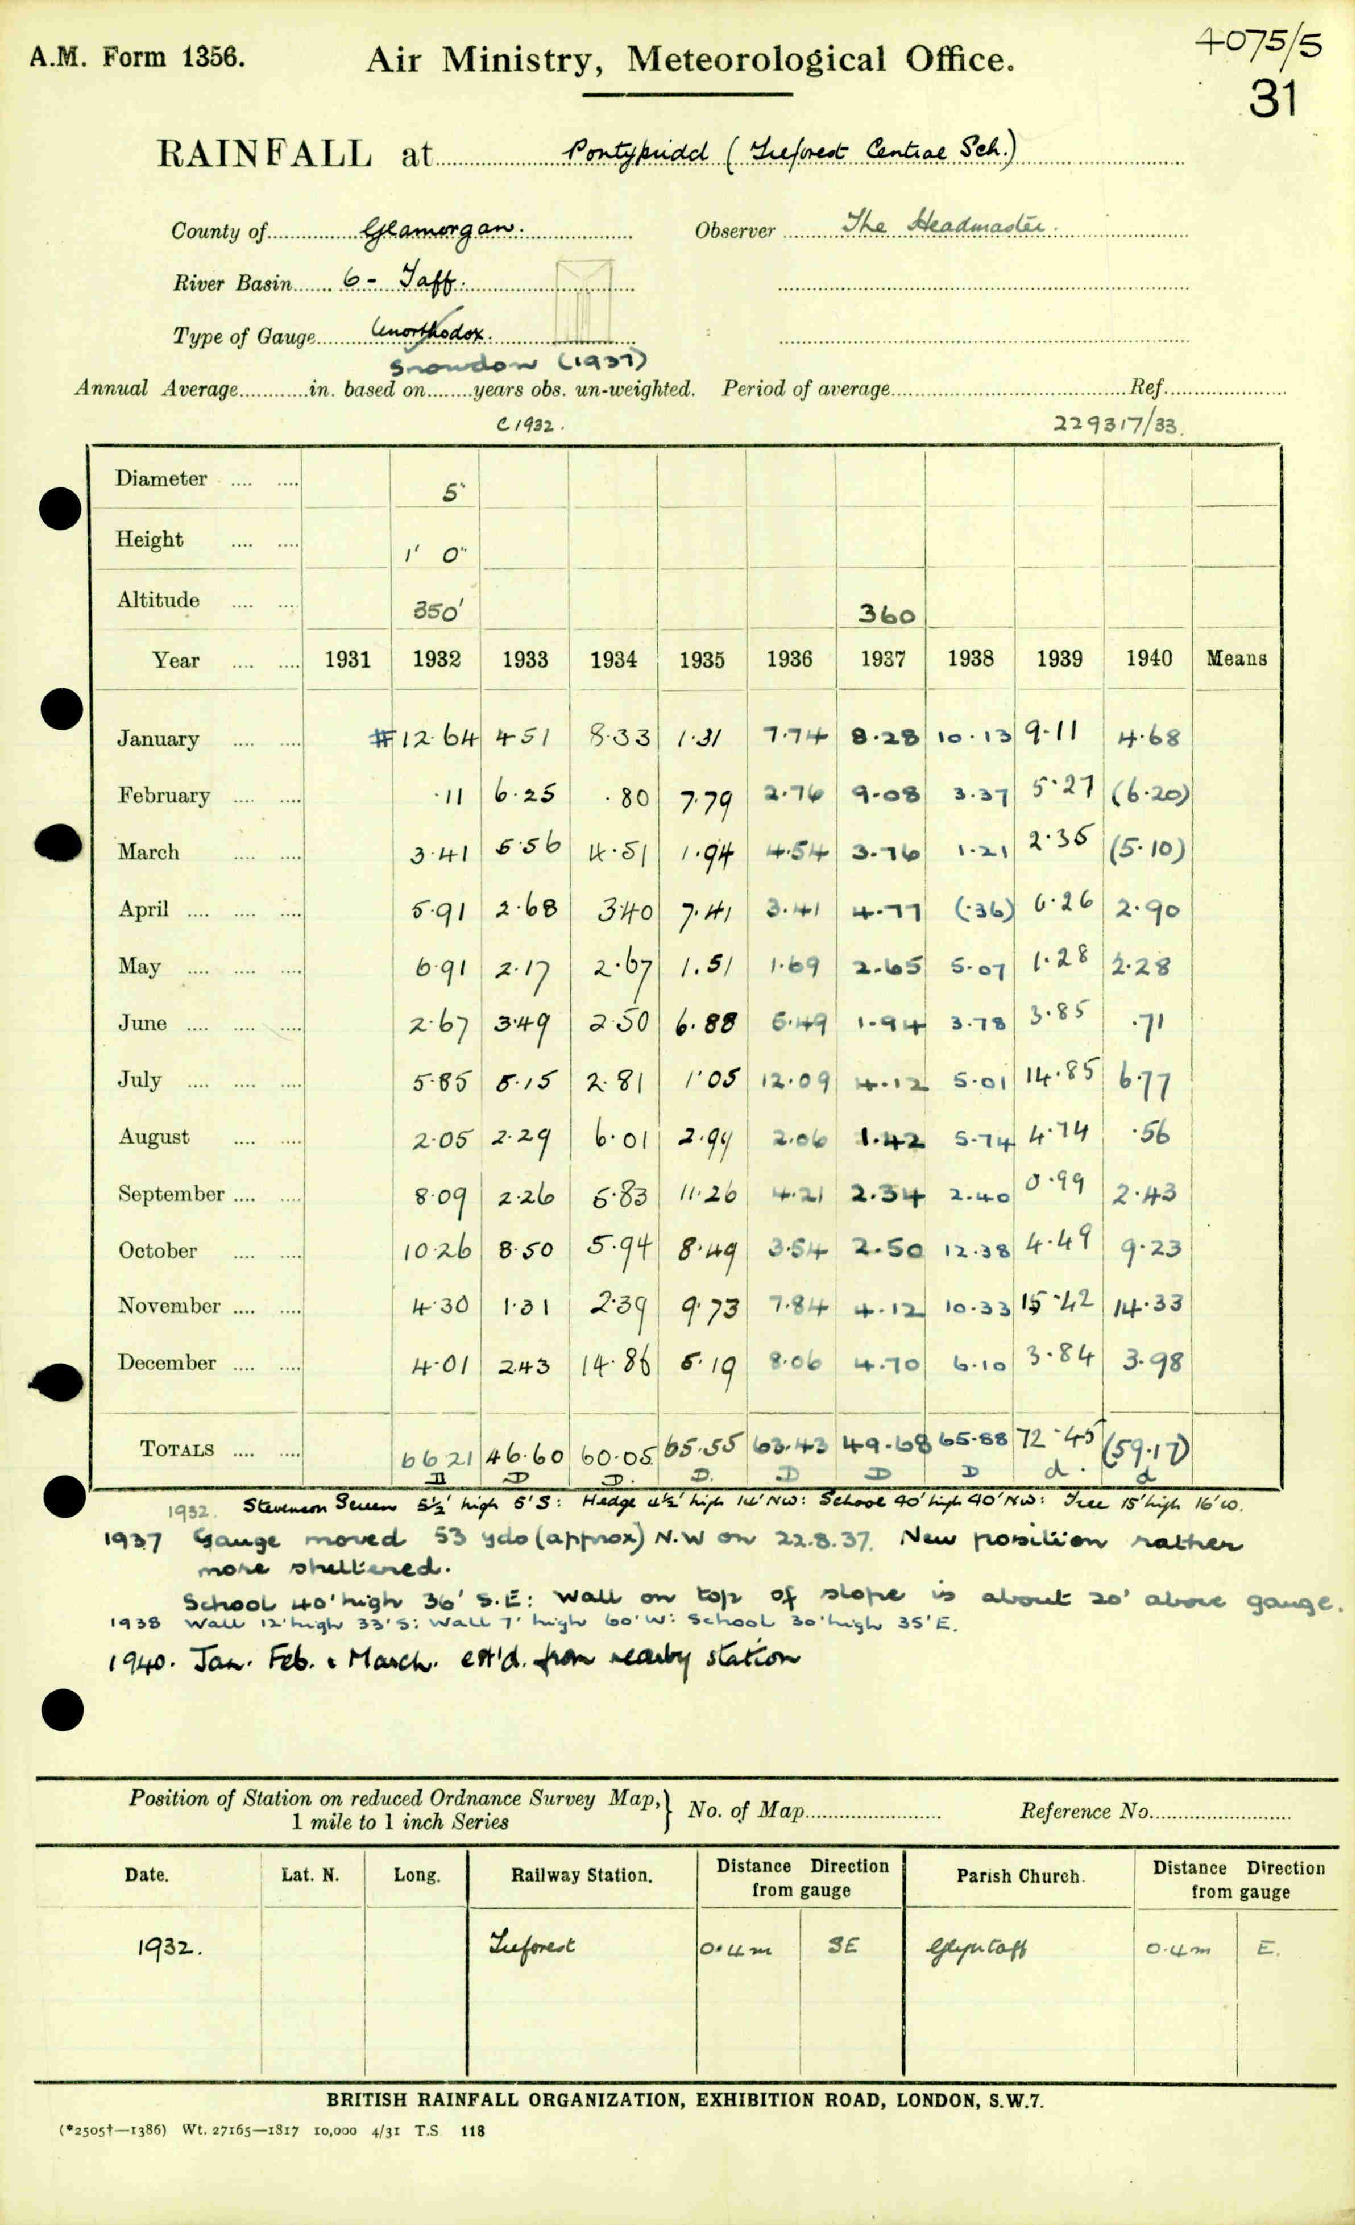 A.M. Form 1356. Air Ministry, Meteorological Office. 4075/5
31
RAINFALL at Pontypridd (Treforest Central Sch.)
County of Glamorgan. Observer The Headmaster.
River Basin 6 - Taff.
Type of Gauge Unorthodox.
Snowdon (1937)
Annual Average in. based on years obs. un-weighted. Period of average Ref.
C 1932. 229317/33.
Diameter 5"
Height 1' 0"
Altitude 350' 360
Year 1931 1932 1933 1934 1935 1936 1937 1938 1939 1940 Means
January #12.64 4.51 8.33 1.31 7.74 8.28 10.13 9.11 4.68
February .11 6.25 .80 7.79 2.76 9.08 3.37 5.27 (6.20)
March 3.41 5.56 4.51 1.94 4.54 3.76 1.21 2.35 (5.10)
April 5.91 2.68 3.40 7.41 3.41 4.77 (.36) 6.26 2.90
May 6.91 2.17 2.67 1.51 1.69 2.65 5.07 1.28 2.28
June 2.67 3.49 2.50 6.88 5.49 1.94 3.78 3.85 .71
July 5.85 5.15 2.81 1.05 12.09 4.12 5.01 14.85 6.77
August 2.05 2.29 6.01 2.99 2.06 1.42 5.74 4.74 .56
September 8.09 2.26 5.83 11.26 4.21 2.34 2.40 0.99 2.43
October 10.26 8.50 5.94 8.49 3.54 2.50 12.38 4.49 9.23
November 4.30 1.31 2.39 9.73 7.84 4.12 10.33 15.42 14.33
December 4.01 2.43 14.86 5.19 8.06 4.70 6.10 3.84 3.98
TOTALS 66.21 46.60 60.05 65.55 63.43 49.68 65.88 72.45 (59.17)
D D D. D. D D D d. d
1932. Stevenson Screen 5½' high 5' S: Hedge 4½' high 14' NW: School 40' high 40' NW: Tree 15' high 16' W.
1937 Gauge moved 53 yds (approx) N.W on 22.8.37. New position rather
more sheltered.
School 40' high 36' S.E: Wall on top of slope is about 20' above gauge.
1938 Wall 12' high 33' S: Wall 7' high 60' W: School 30' high 35' E.
1940. Jan. Feb. & March. est'd. from nearby station
Position of Station on reduced Ordnance Survey Map, } No. of Map Reference No.
1 mile to 1 inch Series
Date. Lat. N. Long. Railway Station. Distance Direction from gauge Parish Church. Distance Direction from gauge
1932. Treforest 0.4m SE Glyntaff 0.4m E.
BRITISH RAINFALL ORGANIZATION, EXHIBITION ROAD, LONDON, S.W.7.
(*2505†—1386) Wt. 27165—1817 10,000 4/31 T.S. 118